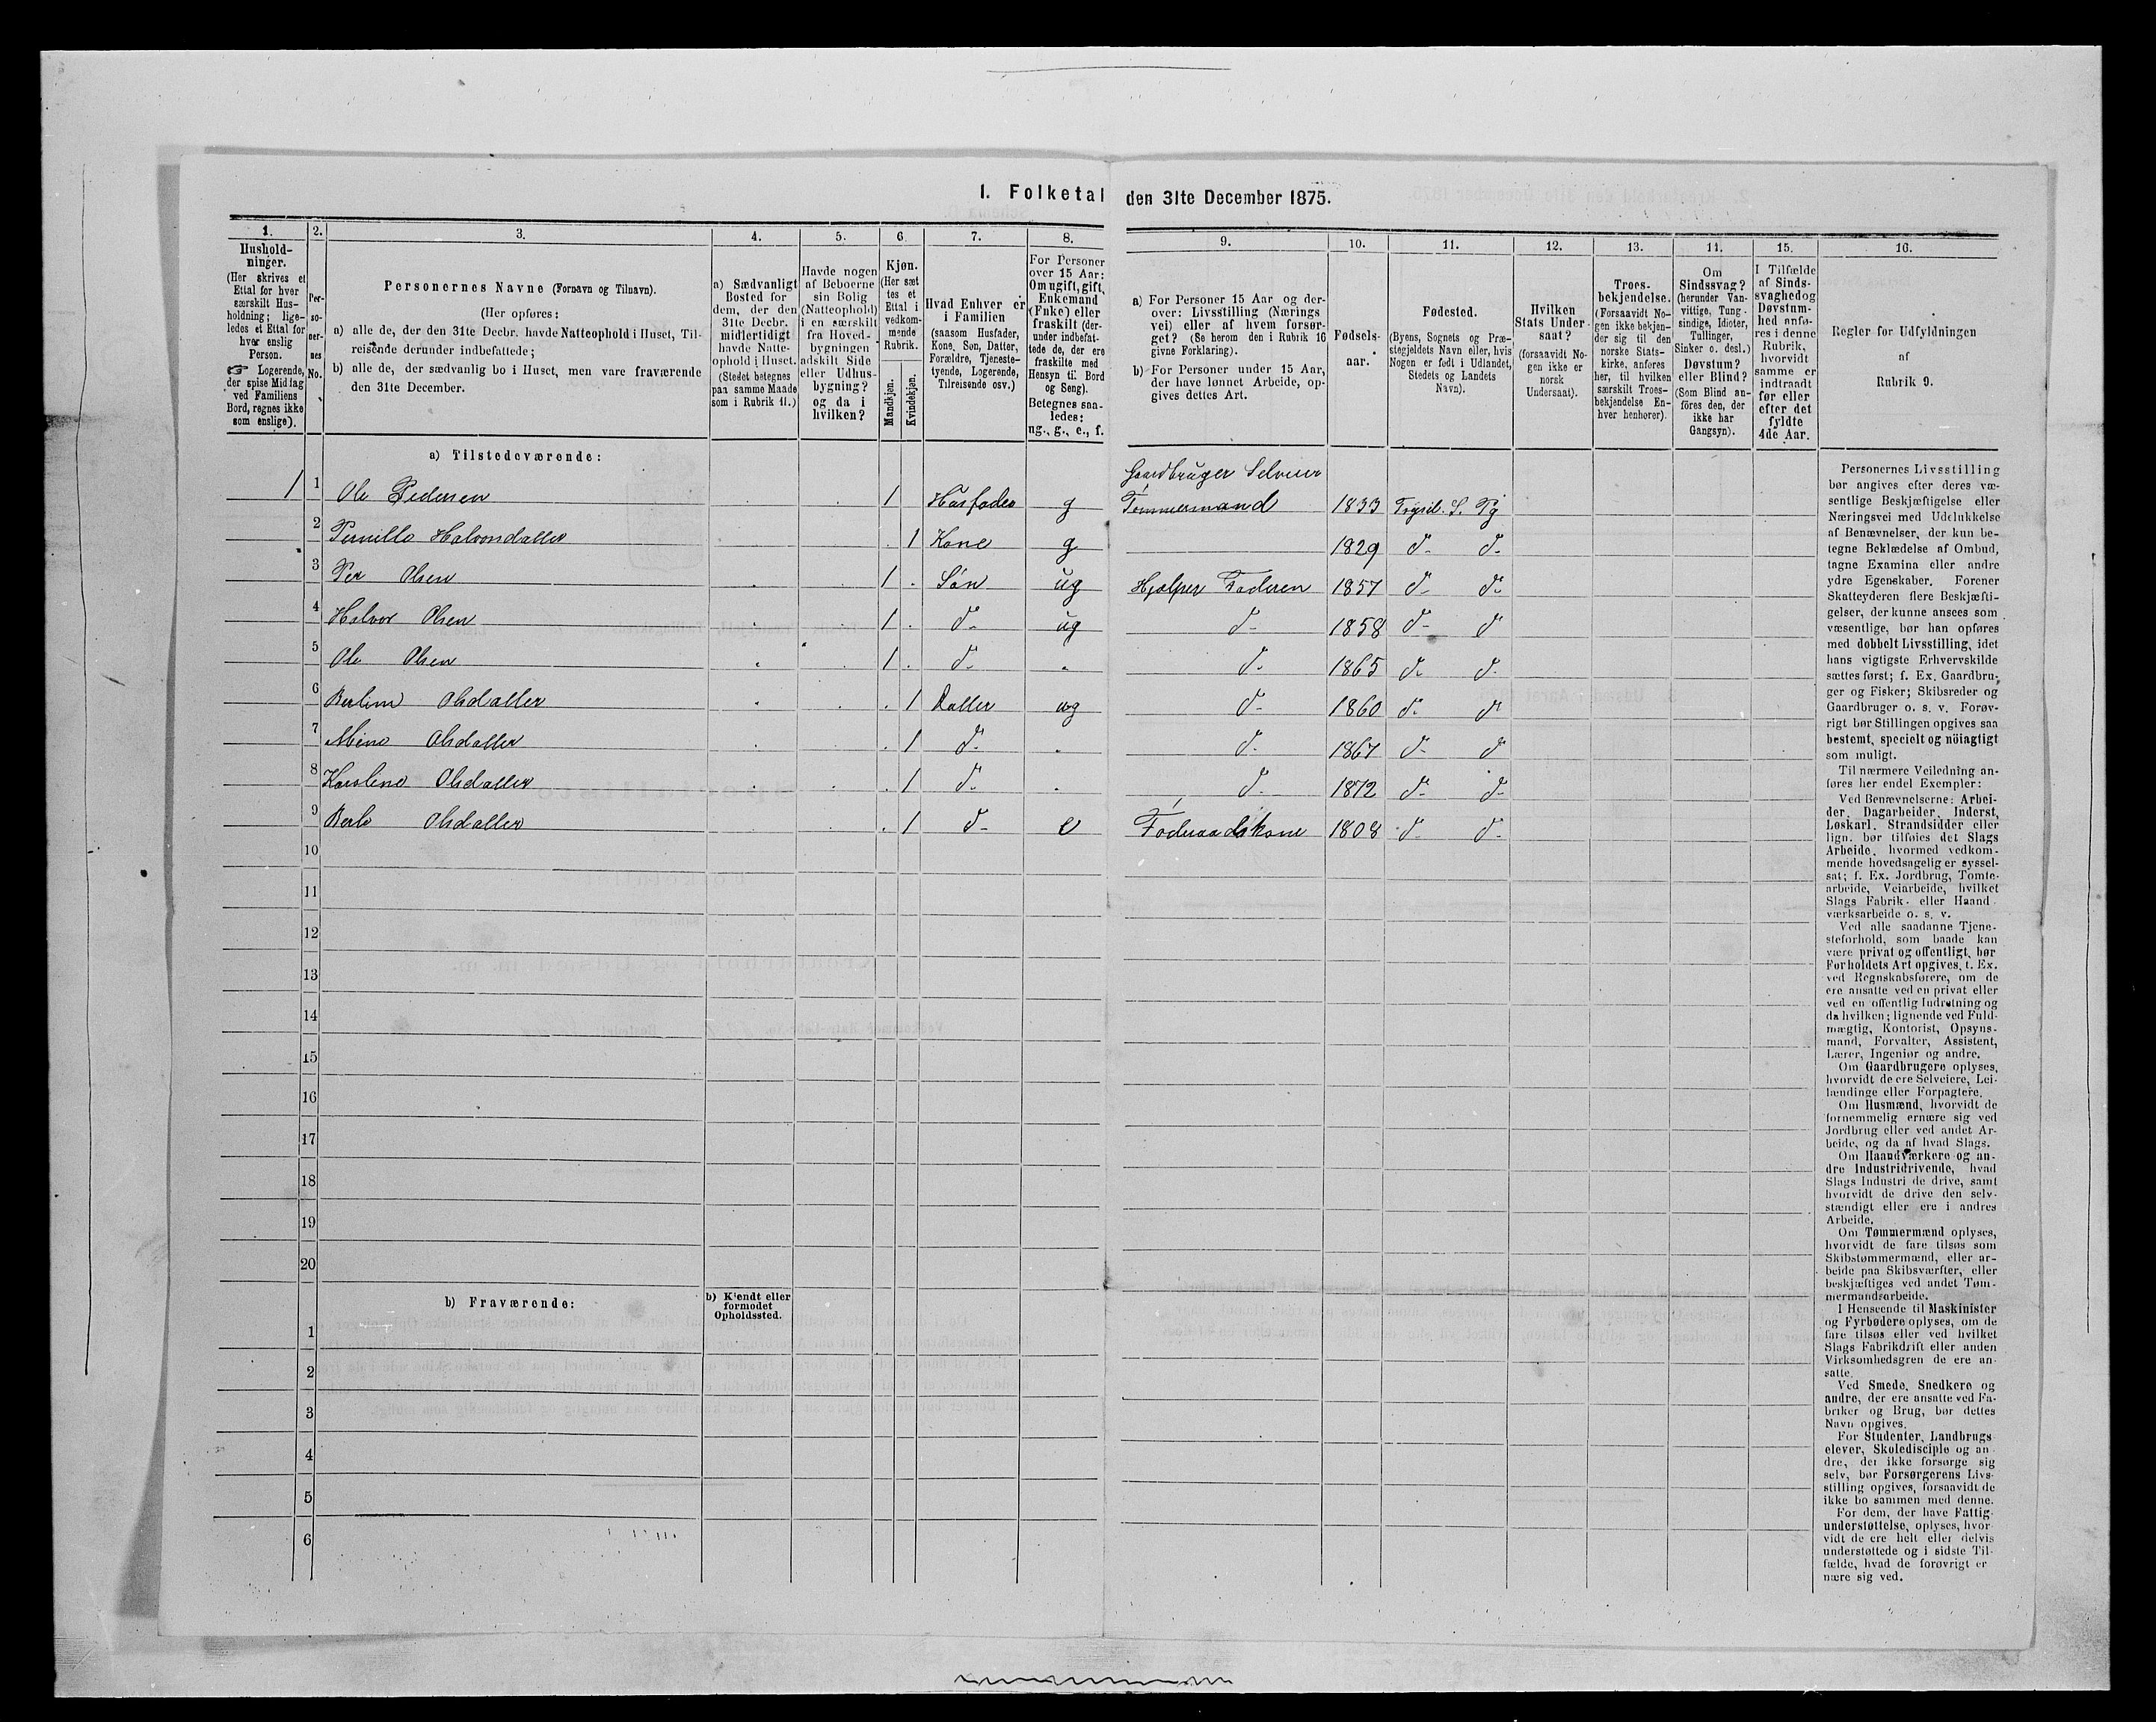 1. Folketal den 31te December 1875.
1.
Hushold-
ninger.
(Her skrives et
Ettal for hver
særskilt Hus-
holdning; lige-
ledes et Ettal for
hver enslig
Person.
☞ Logerende,
der spise Middag
ved Familiens
Bord, regnes ikke
som enslige).
2.
Per-
so-
ner-
nes
No.
3.
Personernes Navne (Fornavn og Tilnavn).
(Her opføres:
a) alle de, der den 31te Decbr. havde Natteophold i Huset, Til-
reisende derunder indbefattede;
b) alle de, der sædvanlig bo i Huset, men vare fraværende
den 31te December.
4.
a) Sædvanligt
Bosted for
dem, der den
31te Decbr.
midlertidigt
havde Natte-
ophold i Huset.
(Stedet betegnes
paa samme Maade
som i Rubrik 11.)
5.
Havde nogen
af Beboerne
sin Bolig
(Natteophold)
i en særskilt
fra Hoved-
bygningen
adskilt Side
eller Udhus-
bygning?
og da i
hvilken?
6.
Kjøn.
(Her sæt
tes et
Ettal i
vedkom-
mende
Rubrik.
Mandkjøn.
Kvindekjøn.
7.
Hvad Enhver er
i Familien
(saasom Husfader,
Kone, Søn, Datter,
Forældre, Tjeneste-
tyende, Logerende,
Tilreisende osv.)
8.
For Personer
over 15 Aar:
Om ugift, gift,
Enkemand
(Enke) eller
fraskilt (der-
under indbefat-
tede de, der ere
fraskilte med
Hensyn til Bord
og Seng).
Betegnes saa-
ledes:
ug., g., e., f.
9.
a) For Personer 15 Aar og der-
over: Livsstilling (Nærings
vei) eller af hvem forsør-
get? (Se herom den i Rubrik 16
givne Forklaring).
b) For Personer under 15 Aar,
der have lønnet Arbeide, op-
gives dettes Art.
10.
Fødsels-
aar.
11.
Fødested.
(Byens, Sognets og Præ-
stegjeldets Navn eller, hvis
Nogen er født i Udlandet,
Stedets og Landets
Navn).
12.
Hvilken
Stats Under-
saat?
(forsaavidt No-
gen ikke er
norsk
Undersaat).
13.
Troes-
bekjendelse.
(Forsaavidt No-
gen ikke bekjen-
der sig til den
norske Stats-
kirke, anføres
her, til hvilken
særskilt Troes-
bekjendelse En-
hver henhører).
14.
Om
Sindssvag?
(herunder Van-
vittige, Tung-
sindige, Idioter,
Tullinger,
Sinker o. desl.)
Døvstum?
eller Blind?
(Som Blind an-
føres den, der
ikke har
Gangsyn).
15.
I Tilfælde
af Sinds-
svaghed og
Døvstum-
hed anfø-
res i denne
Rubrik,
hvorvidt
samme er
indtraadt
før eller
efter det
fyldte
4de Aar.
16.
Regler for Udfyldningen
af
Rubrik 9.
a) Tilstedeværende:
Gaardbruger Selveier
1 1 Ole Pedersen 1 Husfader g Tømmermand 1833 Trysil. S. Pg
2 Pernille Halvorsdatter 1 Kone g 1829 d. d.
3 Per Olsen 1 Søn ug Hjælper Faderen 1857 d. d.
4 Halvor Olsen 1 d. ug d. 1858 d. d
5 Ole Olsen 1 d. d. 1865 d. d.
6 Olsdatter 1 Datter ug d. 1860 d. d
7 Olsdatter 1 d. d. 1867 d. d
8 Olsdatter 1 d. d. 1872 d. d.
9 Olsdatter 1 d. e Føderaadskone 1808 d. d.
10
11
12
13
14
15
16
17
18
19
20
b) Fraværende: b) Kjendt eller
formodet
Opholdssted.
1
2
3
4
5
6
Personernes Livsstilling
bør angives efter deres væ-
sentlige Beskjæftigelse eller
Næringsvei med Udelukkelse
af Benævnelser, der kun be-
tegne Beklædelse af Ombud,
tagne Examina eller andre
ydre Egenskaber. Forener
Skatteyderen flere Beskjæfti-
gelser, der kunne ansees som
væsentlige, bør han opføres
med dobbelt Livsstilling, idet
hans vigtigste Erhvervskilde
sættes først; f. Ex. Gaardbru-
ger og Fisker; Skibsreder og
Gaardbruger o. s. v. Forøv-
rigt bør Stillingen opgives saa
bestemt, specielt og nöiagtigt
som muligt.
Til nærmere Veiledning an-
føres her endel Exempler:
Ved Benævnelserne: Arbei-
der, Dagarbeider, Inderst,
Løskarl, Strandsidder eller
lign. bør tilføies det Slags
Arbeide, hvormed vedkom-
mende hovedsagelig er syssel-
sat; f. Ex. Jordbrug, Tomte-
arbeide, Veiarbeide, hvilket
Slags Fabrik- eller Haand-
værksarbeide o. s. v.
Ved alle saadanne Tjene-
steforhold, som baade kan
være privat og offentligt, bør
Forholdets Art opgives, t. Ex.
ved Regnskabsførere, om de
ere ansatte ved en privat eller
ved en offentlig Indretning og
da hvilken; lignende ved Fuld-
mægtig, Kontorist, Opsyns-
mand, Forvalter, Assistent,
Lærer, Ingeniør og andre.
Om Gaardbrugere oplyses,
hvorvidt de ere Selveiere, Lei-
lændinge eller Forpagtere.
Om Husmænd, hvorvidt de
fornemmelig ernære sig ved
Jordbrug eller ved andet Ar-
beide, og da af hvad Slags.
Om Haandværkere og an-
dre Industridrivende, hvad
Slags Industri de drive, samt
hvorvidt de drive den selv-
stændigt eller ere i andres
Arbeide.
Om Tømmermænd oplyses,
hvorvidt de fare tilsøs som
Skibstømmermænd, eller ar-
beide paa Skibsværfter, eller
beskjæftiges ved andet Tøm-
mermandsarbeide.
I Henseende til Maskinister
og Fyrbødere oplyses, om de
fare tilsøs eller ved hvilket
Slags Fabrikdrift eller anden
Virksomhedsgren de ere an-
satte.
Ved Smede, Snedkere og
andre, der ere ansatte ved Fa-
briker og Brug, bør dettes
Navn opgives.
For Studenter, Landbrugs-
elever, Skoledisciple og an-
dre, der ikke forsørge sig
selv, bør Forsørgerens Livs-
stilling opgives, forsaavidt de
ikke bo sammen med denne.
For dem, der have Fattig-
understøttelse, oplyses, hvor-
vidt de ere helt eller delvis
understøttede og i sidste Til-
fælde, hvad de forøvrigt er
nære sig ved.